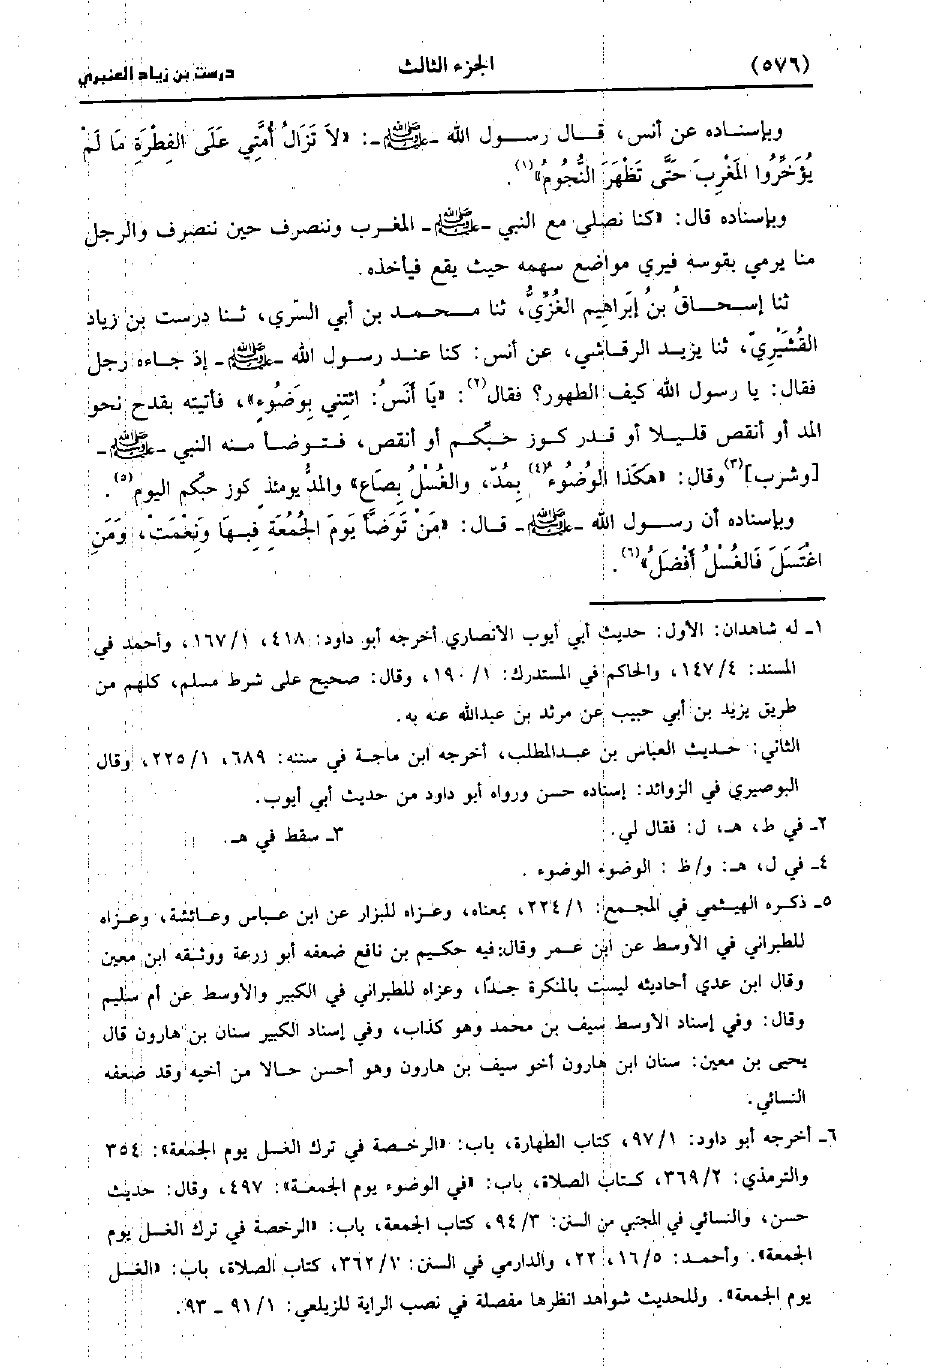 (٥٧٦) الجزء الثالث درست بن زياد العنبري
وبإسناده عن أنس، قال رسول الله -ﷺ-: «لاَ تَزَالُ أُمَّتِي عَلَى الفِطْرَةِ مَا لَمْ
يُؤَخِّرُوا المَغْرِبَ حَتَّى تَظْهَرَ النُّجُومُ»(١).
وبإسناده قال: «كنا نصلي مع النبي -ﷺ- المغرب وننصرف حين ننصرف والرجل
منا يرمي بقوسه فيري مواضع سهمه حيث يقع فيأخذه.
ثنا إسحاقُ بنُ إبَراهِيم الغُزِّيُّ، ثنا محمد بن أبي السّري، ثنا درست بن زياد
القُشَيْرِيّ، ثنا يزيد الرقاشي، عن أنس: كنا عند رسول الله -ﷺ- إذ جاءه رجل
فقال: يا رسول الله كيف الطهور؟ فقال(٢): «يَا أَنَسُ: ائتِني بِوَضُوءٍ»، فأتيته بقدح نحو
المد أو أنقص قليلا أو قدر كوز حبّكم أو أنقص، فتوضأ منه النبي -ﷺ-
[وشرب](٣) وقال: «هكَذا الوُضُوءُ(٤) بِمُدّ، والغُسْلُ بِصَاع» والمدُّ يومئذ كوز حبكم اليوم(٥).
وبإسناده أن رسول الله -ﷺ- قال: «مَنْ تَوَضَّأَ يَومَ الجُمُعَة فِبهَا وَنِعْمَتْ، وَمَنِ
اغْتَسَلَ فَالغُسْلُ أَفْضَلُ»(٦).
١ـ له شاهدان: الأول: حديث أبي أيوب الأنصاري أخرجه أبو داود: ٤١٨، ١/ ١٦٧، وأحمد في
المسند: ٤/ ١٤٧، والحاكم في المستدرك: ١/ ١٩٠، وقال: صحيح على شرط مسلم، كلهم من
طريق يزيد بن أبي حبيب عن مرثد بن عبدالله عنه به.
الثاني: حديث العباس بن عبدالمطلب، أخرجه ابن ماجة في سننه: ٦٨٩، ١/ ٢٢٥، وقال
البوصيري في الزوائد: إسناده حسن ورواه أبو داود من حديث أبي أيوب.
٢ـ في ط، هـ، ل: فقال لي. ٣ـ سقط في هـ.
٤ـ في ل، هـ: و/ ظ : الوضوء الوضوء .
٥ـ ذكره الهيثمي في المجمع: ١/ ٢٢٤، بمعناه، وعزاه للبزار عن ابن عباس وعائشة، وعزاه
للطبراني في الأوسط عن ابن عمر وقال: فيه حكيم بن نافع ضعفه أبو زرعة ووثقه ابن معين
وقال ابن عدي أحاديثه ليست بالمنكرة جدًا، وعزاه للطبراني في الكبير والأوسط عن أم سليم
وقال: وفي إسناد الأوسط سيف بن محمد وهو كذاب، وفي إسناد الكبير سنان بن هارون قال
يحيى بن معين: سنان ابن هارون أخو سيف بن هارون وهو أحسن حالا من أخيه وقد ضعفه
النسائي.
٦ـ أخرجه أبو داود: ١/ ٩٧، كتاب الطهارة، باب: «الرخصة في ترك الغسل يوم الجمعة»: ٣٥٤
والترمذي: ٢/ ٣٦٩، كتاب الصلاة، باب: «في الوضوء يوم الجمعة»: ٤٩٧، وقال: حديث
حسن، والنسائي في المجتبي من السنن: ٣/ ٩٤، كتاب الجمعة، باب: «الرخصة في ترك الغسل يوم
الجمعة». وأحمد: ٥/ ١٦، ٢٢، والدارمي في السنن: ١/ ٣٦٢، كتاب الصلاة، باب: «الغسل
يوم الجمعة». وللحديث شواهد انظرها مفصلة في نصب الراية للزيلعي: ١/ ٩١ ـ ٩٣.